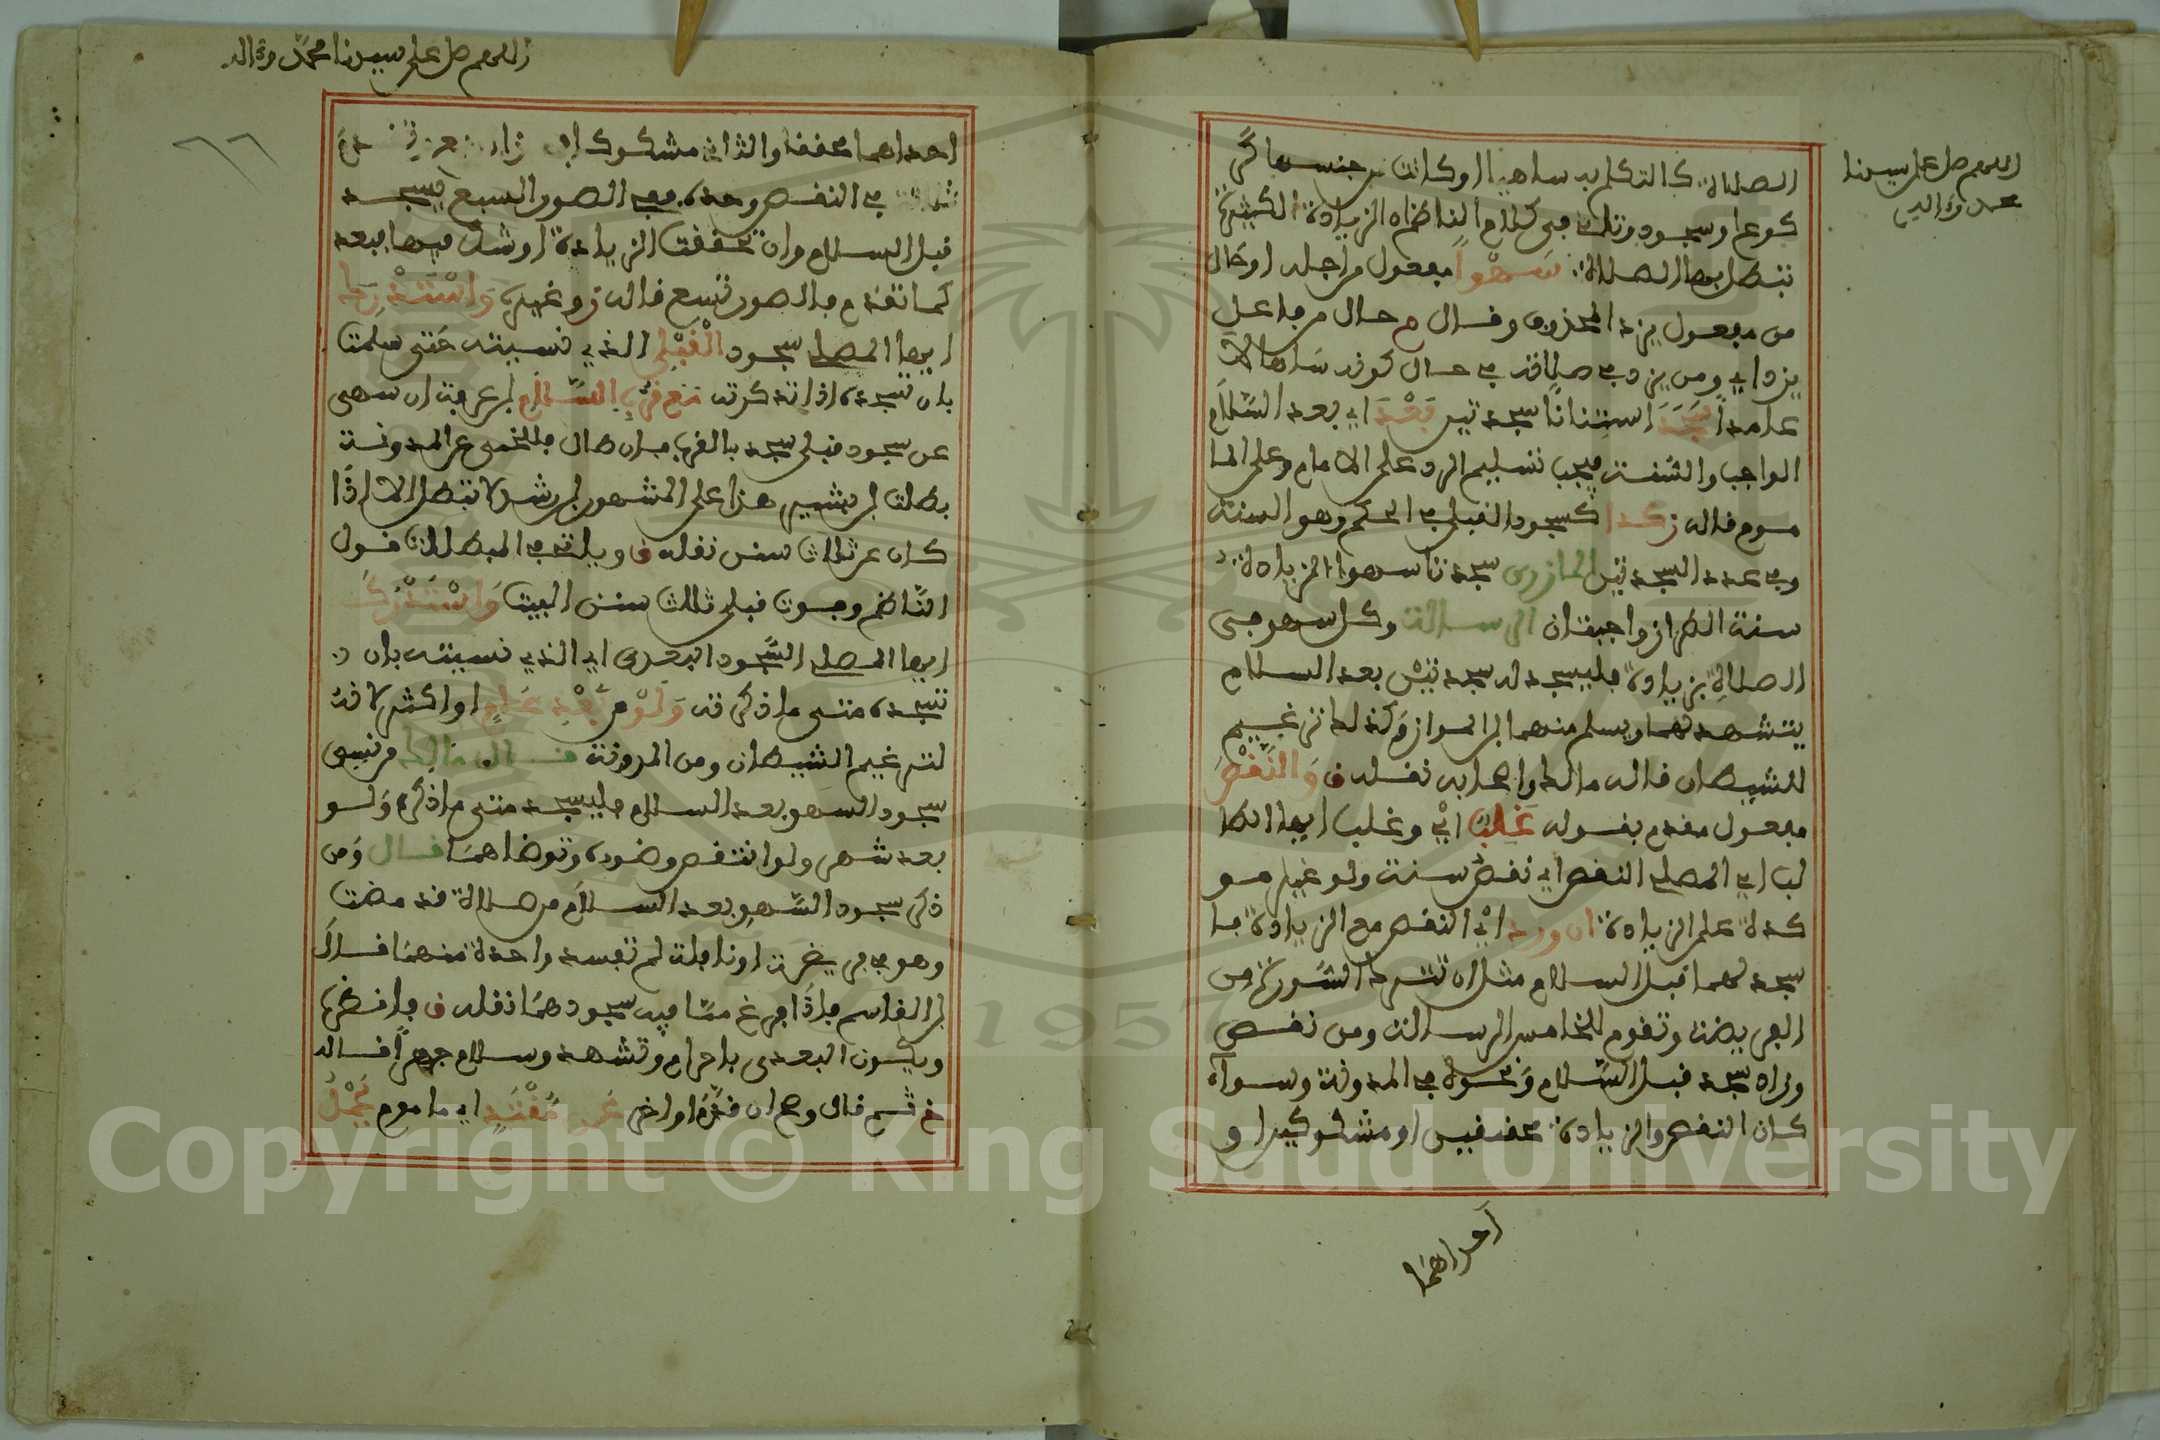 اللهم صل على سيدنا
محمد وءاله
الصلاة كالتكلم به ساهيا او كانت من جنسها كر
كوع او سجود وتلك في كلام الناظم اما الزيادة الكثيرة
تبطل بها الصلاة سَهْواً مفعول من اجله او حال
من مفعول يزد المحذوف وقال م حال من فاعل
يزد اي ومن يزد في صلاته في حال كونه ساهيا لا
عامدا سَجَدَ استنانا سجدتين بَعْدَ اي بعد السلام
الواجب والسنة فيجب تسليم الرد على الامام وعلى الما
موم قاله ز كذا كسجود القبلي في الحكم وهو السنة
وفي عدد السجدتين المازري سجدتا سهوا الزيادة
سنة الطراز واجبتان الرسالة وكل سهو في
الصلاة بزيادة فليسجد له سجدتين بعد السلام
يتشهد لهما ويسلم منهما ابن المواز وكذلك ترغيم
للشيطان قاله مالك واصحابه نقله ق وَالنَّقْصَ
مفعول مقدم بقوله غَلِّبْ اي وغلب ايها الطا
لب اي المصلي النقص اي نقص سنة ولو غير مو
كدة على الزيادة ان ورد اي النقص مع الزيادة فا
سجد لهما قبل السلام مثل ان تترك السورة من
الفريضة وتقوم للخامسة الرسالة ومن نقص
وزاد سجد قبل السلام ونحوه في المدونة وسواء
كان النقص والزيادة محققين او مشكوكين او
احداهما
اللهم صل على سيدنا محمد وءاله
٦٦
احداهما محققا والثاني مشكوك
في النقص وحده ففي الصور السبع يسجد
قبل السلام وان تحققت الزيادة او شك فيها فبعد
كما تقدم فالصور تسع قاله ز وغيره وَاسْتَدْرِك
ايها المصلي سجود الْقَبْلِي الذي نسيته حتى سلمت
بان تسجده اذا تذكرته مَعْ قُرْبِ السَّلَامِ ابن عرفة ان سهى
عن سجود قبلي سجد بالقرب فان طال فاللخمي عن المدونة
بطلت ابن بشير هذا على المشهور ابن رشد لا تبطل الا اذا
كان عن ثلاث سنن نقله ق وياتي في المبطلات قول
الناظم وفوت قبلي ثلاث سنن البيت وَاسْتَدْرِكِ
ايها المصلي السجود البعدي اي الذي نسيته بان
تسجده متى ما ذكرته وَلَوْ مِنْ بَعْدِ عَامٍ او اكثر لانه
لترغيم الشيطان ومن المدونة قال مالك من نسي
سجود السهو بعد السلام فليسجد متى ما ذكره ولو
بعد شهر ولو انتقض وضوءه وتوضا لهما قال ومن
ذكر سجود السهو بعد السلام من صلاة قد مضت
وهو في فريضة او نافلة لم تفسد واحدة منهما قال
ابن القاسم فاذا فرغ مما فيه سجودهما نقله ق فانظره
ويكون البعدي باحرام وتشهد وسلام جهرا قاله
خ ثم قال وصح ان قدم او اخر عَنْ مُقْتَدٍ اي ماموم يَحْمِلُ
Copyright © King Saud University
1957